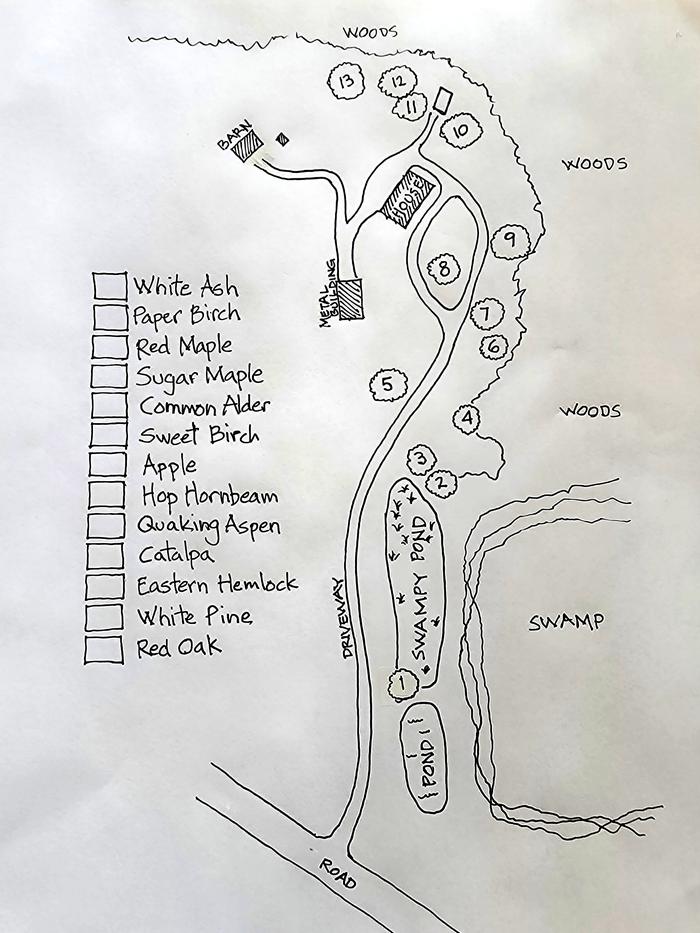 WOODS
13
12
11
10
BARN
WOODS
HOUSE
9
8
METAL
BUILDING
7
6
5
4
WOODS
3
2
White Ash
Paper Birch
Red Maple
Sugar Maple
Common Alder
Sweet Birch
Apple
Hop Hornbeam
Quaking Aspen
Catalpa
Eastern Hemlock
White Pine
Red Oak
SWAMPY POND
DRIVEWAY
SWAMP
1
POND
ROAD